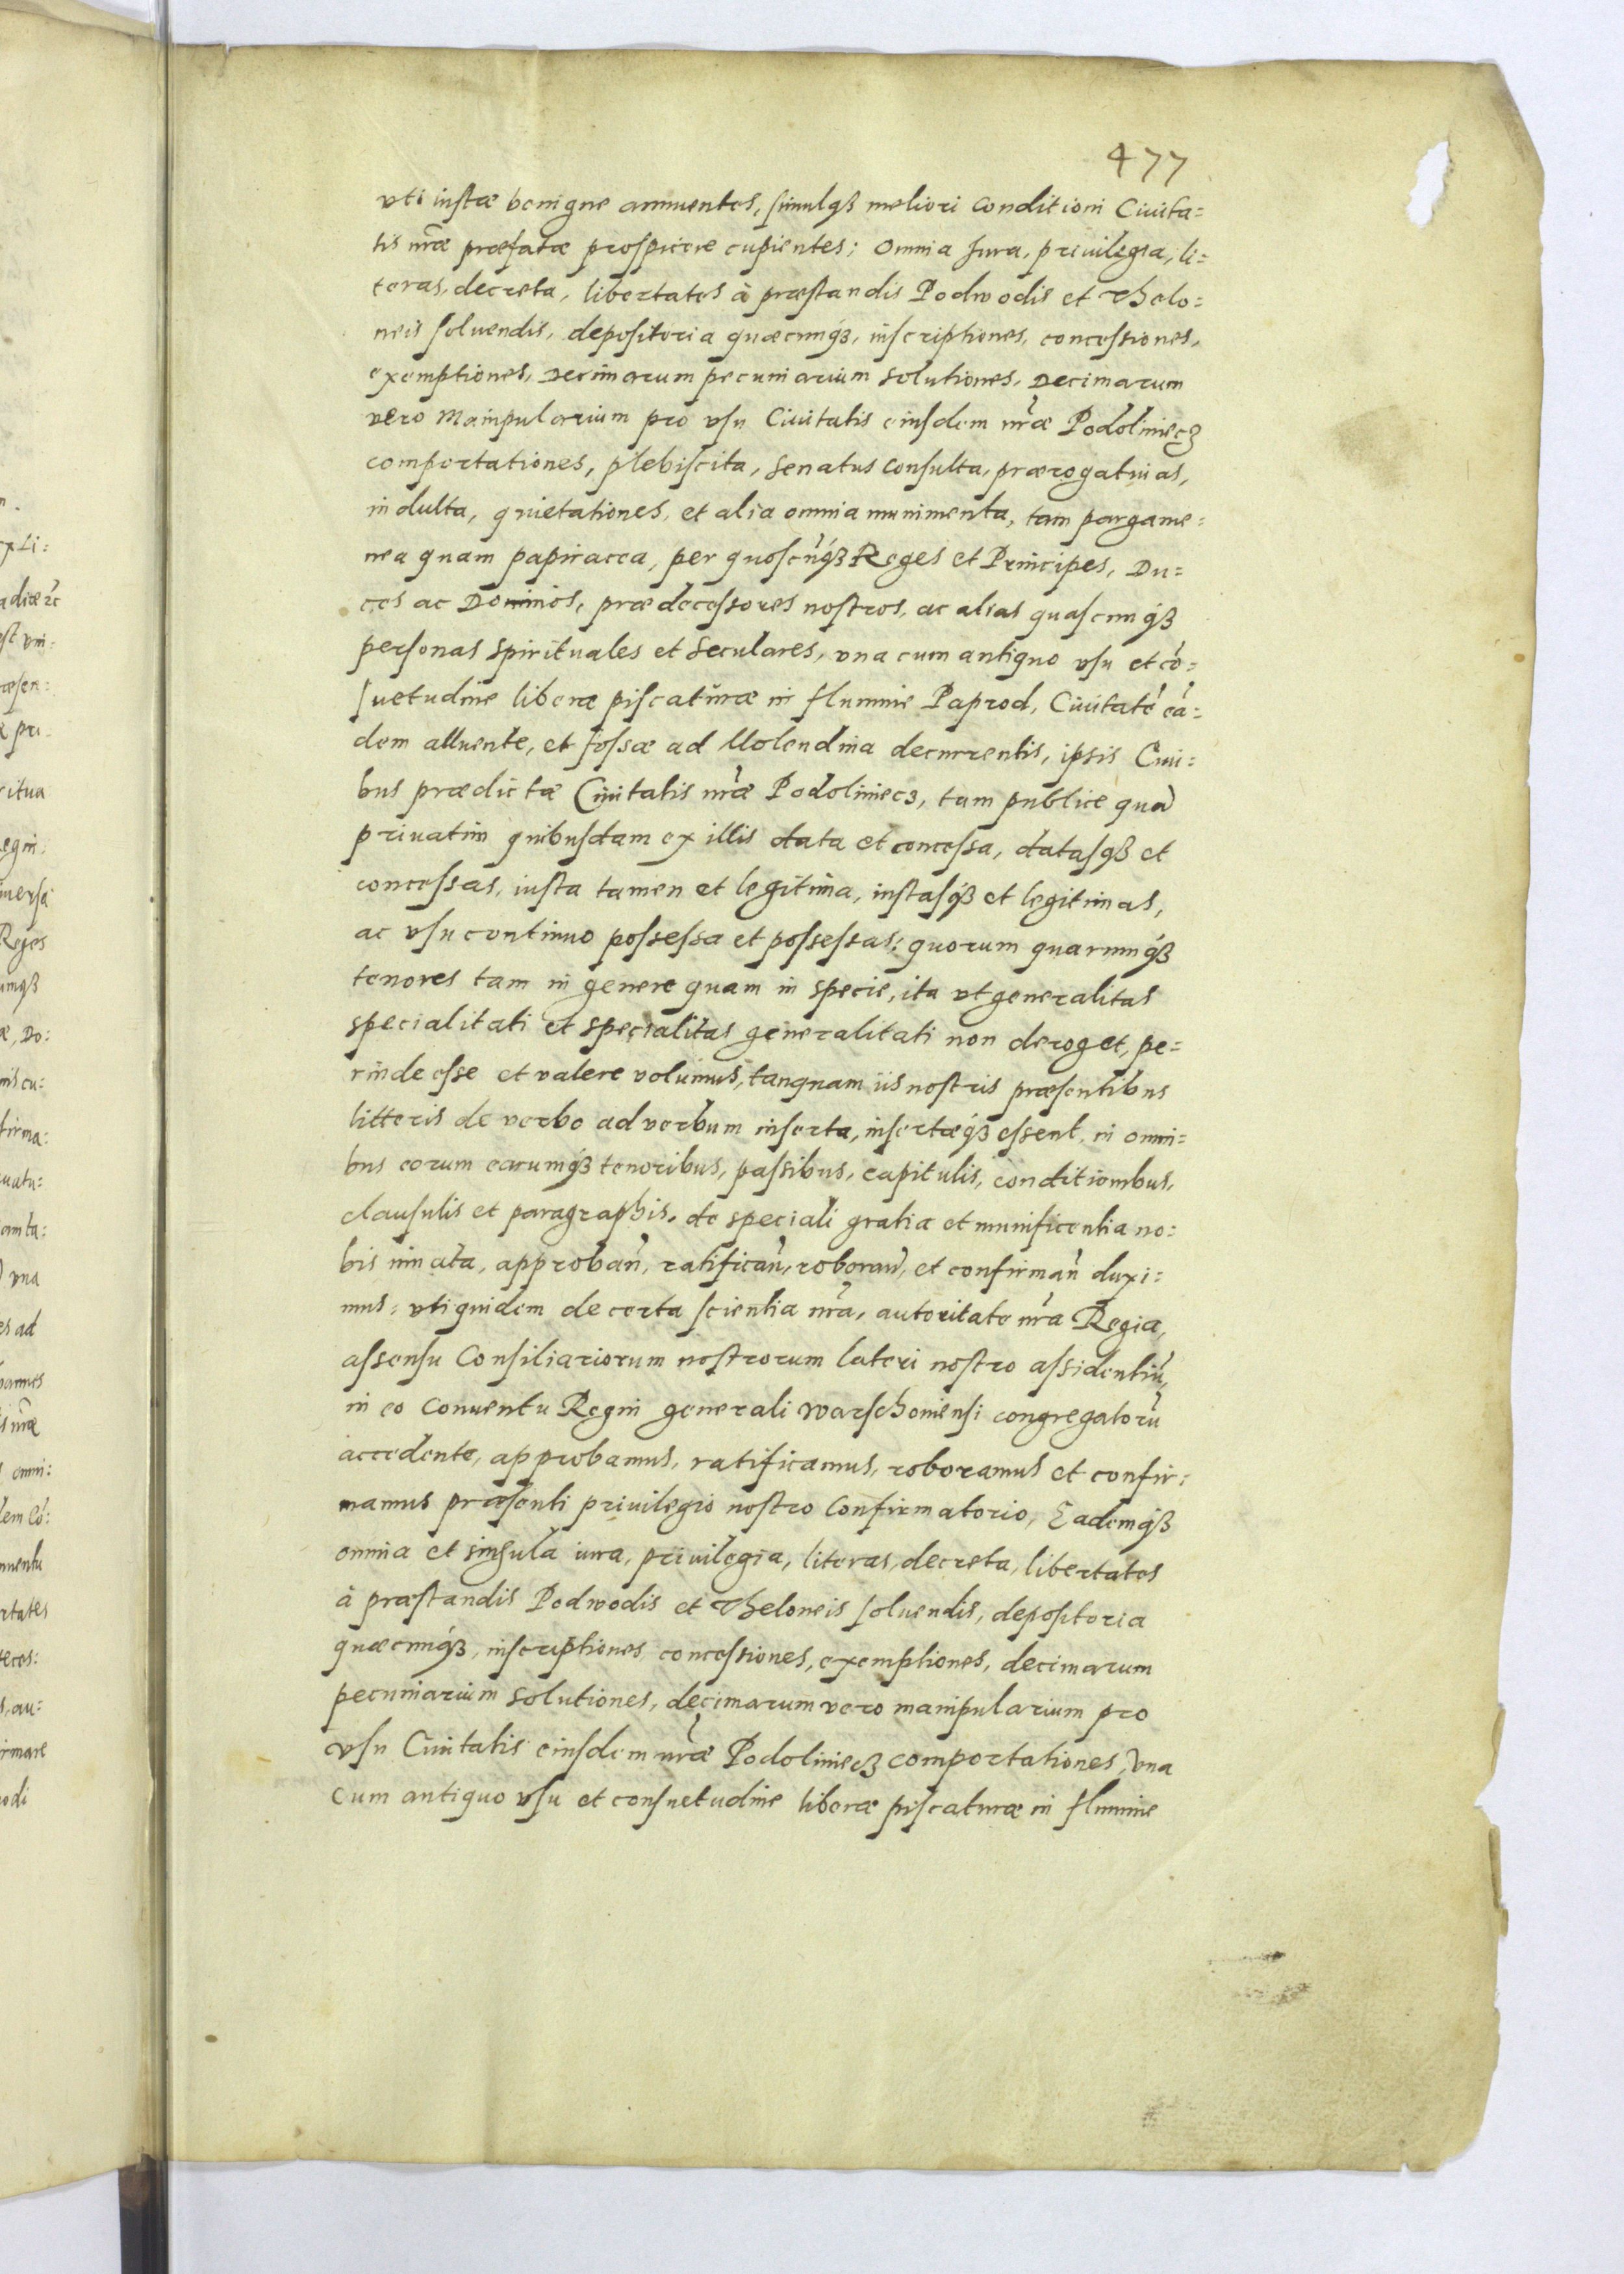 477
vti iustæ benigne annuentes, simulqȝ meliori conditioni Ciuita=
tis nr̃æ præfatæ prospicere cupientes; omnia Jura, priuilegia, li=
teras, decreta, libertates à præstandis Podwodis et Thelo=
neis soluendis, depositoria quæcunqȝ, inscriptiones, concessiones,
exemptiones, Decimarum pecuniarium solutiones, Decimarum
vero Manipularium pro vsu Ciuitatis eiusdem nr̃æ Podoliniecz
comportationes, plebiscita, Senatus consulta, prærogatiuas,
indulta, quietationes, et alia omnia munimenta, tam pargame=
nea quam papiracea, per quoscũqȝ Reges et Principes, Du=
ces ac Dominos, prædecessores nostros, ac alias quascunqȝ
personas spirituales et seculares, vna cum antiquo vsu et cõ=
suetudine liberæ piscaturæ in flumine Paprod, Ciuitatẽ eã=
dem alluente, et fossæ ad Molendina decurrentis, ipsis Ciui=
bus prædictæ Ciuitatis nr̃æ Podoliniecz, tam publice quã
priuatim quibusdam ex illis data et concessa, datasqȝ et
concessas, iusta tamen et legitima, iustasqȝ et legitimas,
ac vsu continuo possessa et possessas: quorum quarumqȝ
tenores tam in genere quam in specie, ita vt generalitas
specialitati et specialitas generalitati non deroget, pe=
rinde esse et valere volumus, tanquam iis nostris præsentibus
litteris de verbo ad verbum inserta, insertæqȝ essent, in omni=
bus eorum earumqȝ tenoribus, passibus, capitulis, conditionibus,
clausulis et paragraphis, de speciali gratia et munificentia no=
bis innata, approban̄, ratifican̄, roboran̄, et confirman̄ duxi=
mus: vti quidem de certa scientia nr̃a, autoritate nr̃a Regia,
assensu Consiliariorum nostrorum lateri nostro assidentiũ,
in eo Conuentu Regni generali Warschouiensi congregatorũ
accedente, approbamus, ratificamus, roboramus et confir=
mamus præsenti priuilegio nostro Confirmatorio, Eademqȝ
omnia et singula iura, priuilegia, literas, decreta, libertates
à præstandis Podwodis et Theloneis soluendis, depositoria
quæcunqȝ, inscriptiones, concessiones, exemptiones, decimarum
pecuniarium solutiones, decimarum vero manipularium pro
vsu Ciuitatis eiusdem nr̃æ Podoliniecz comportationes, vna
cum antiquo vsu et consuetudine liberæ piscaturæ in flumine